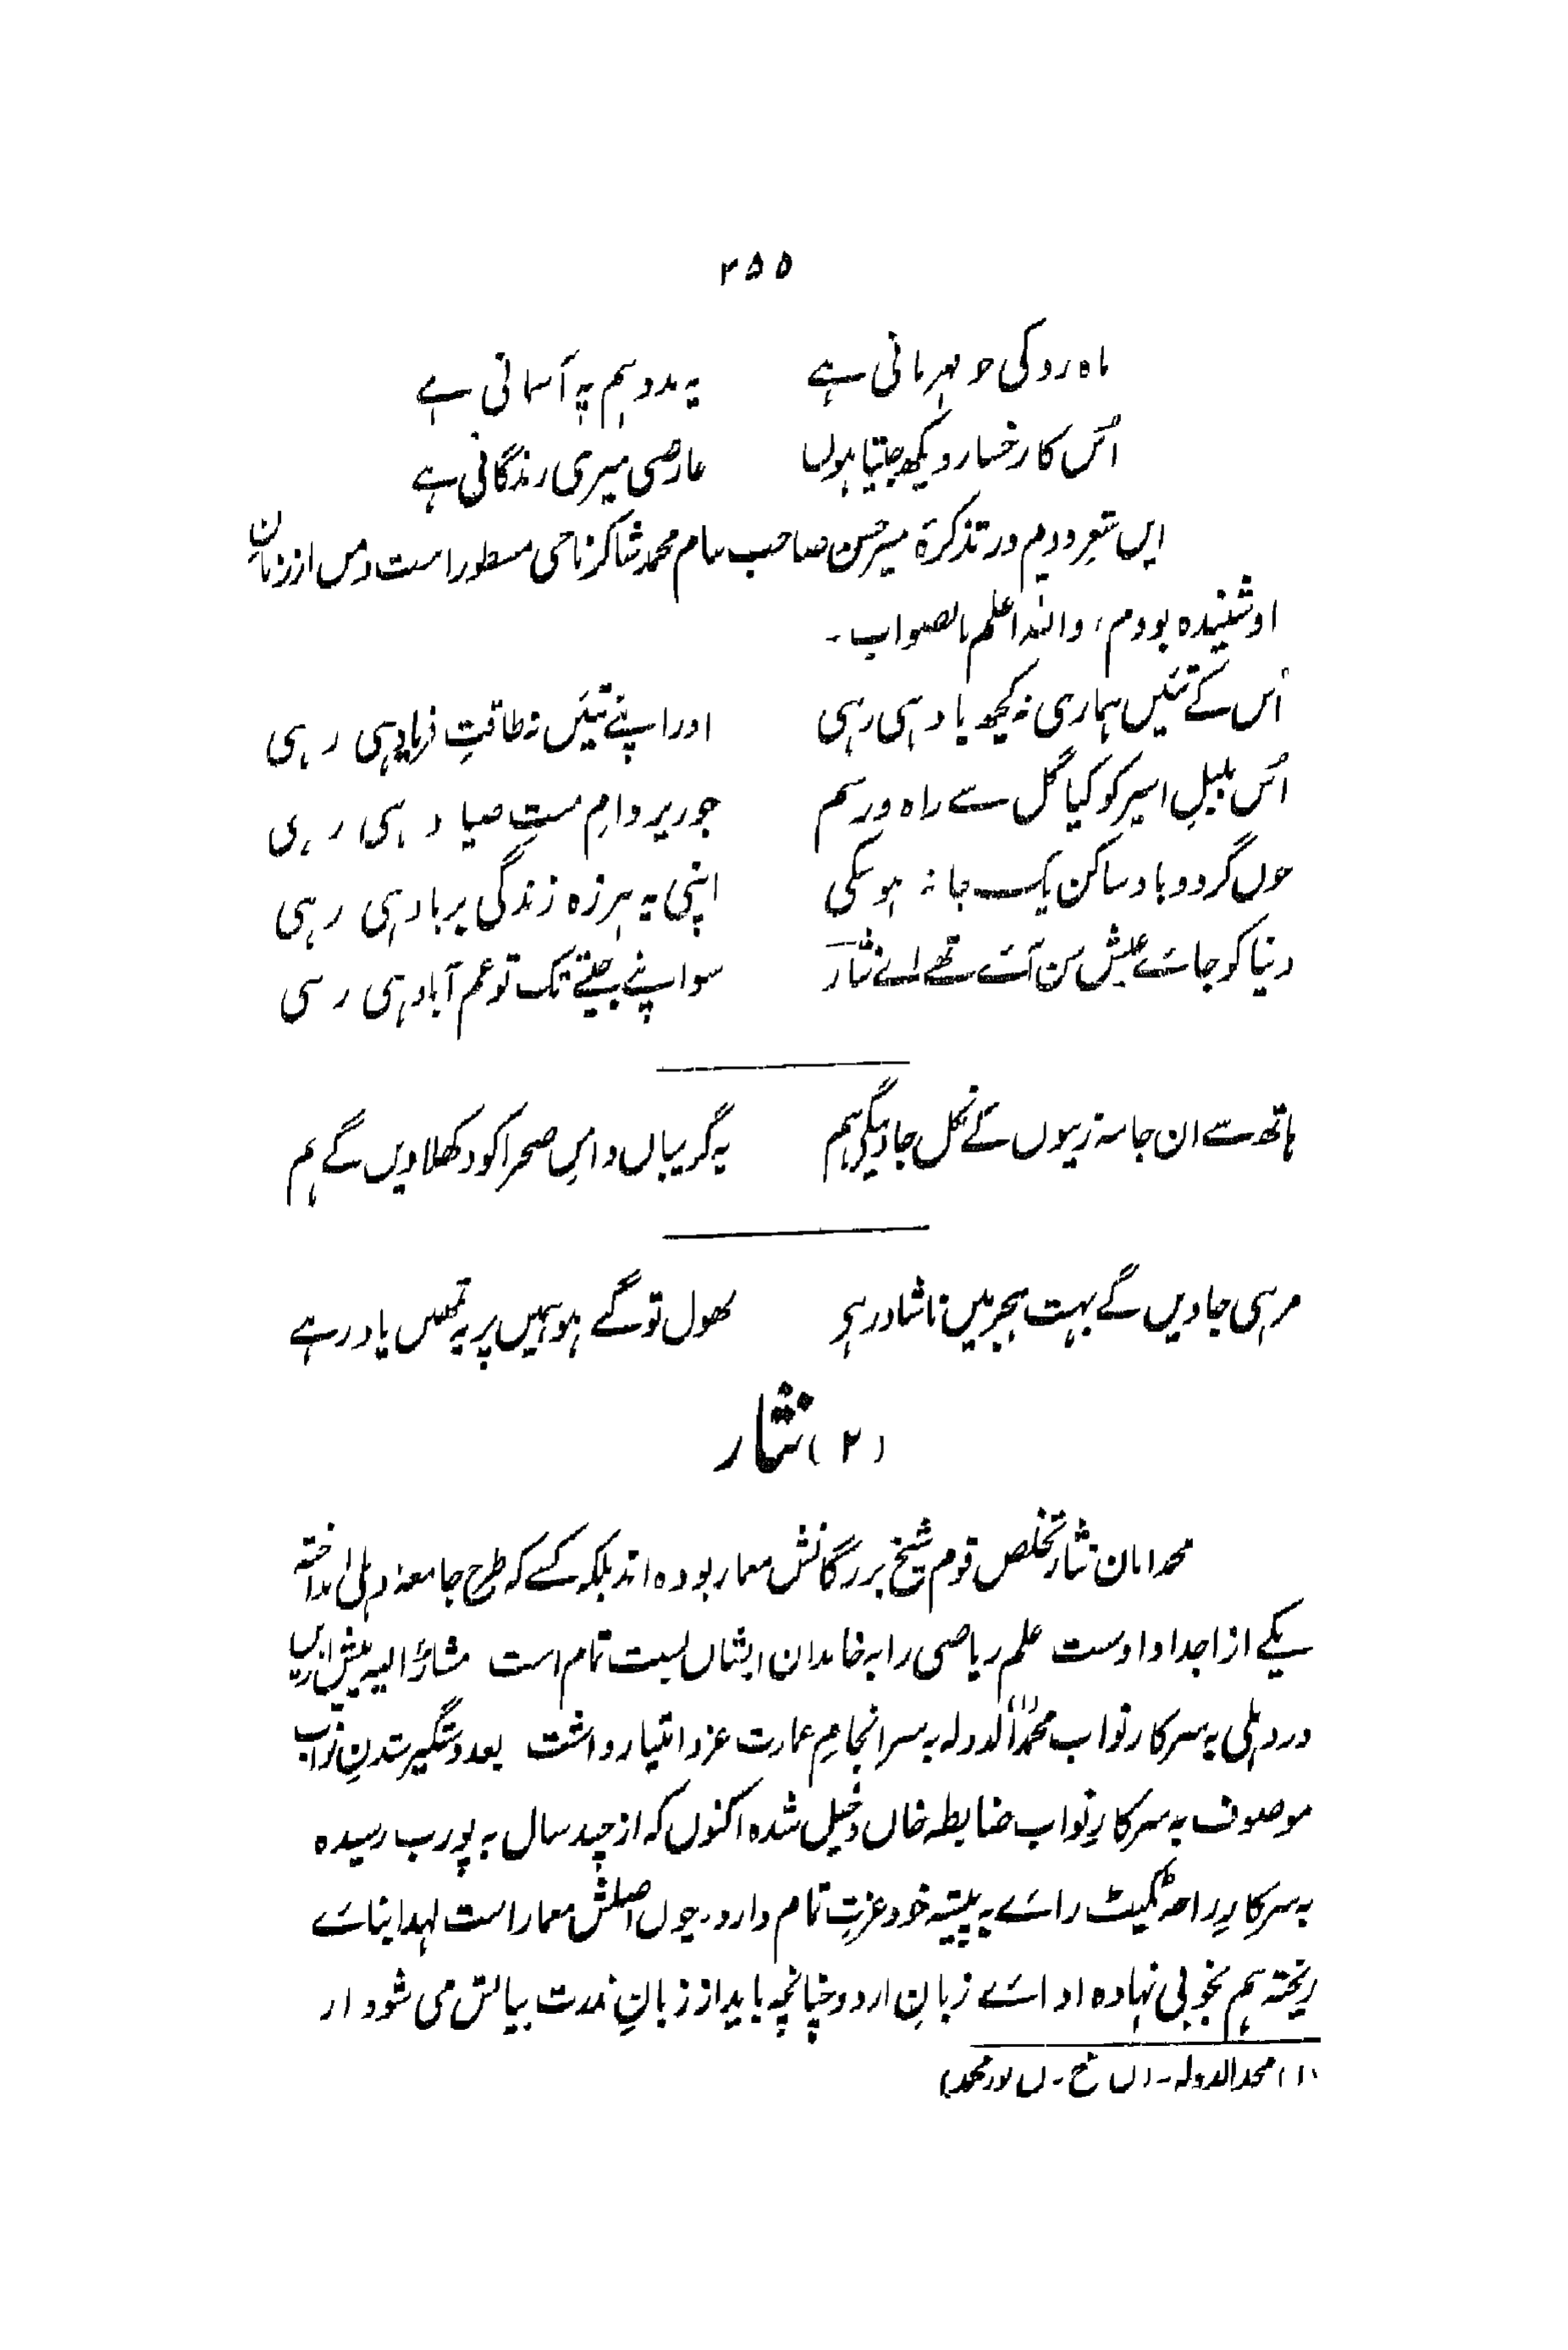 ۲۵۵
ماہ رو کی جو مہربانی ہے یہ مدد ہم پہ آسمانی ہے
اُس کا رخسار دیکھ جیتا ہوں عارضی میری زندگانی ہے
ایں شعر دویم در تذکرۂ میر حسن صاحب بنام محمد شاکر ناجی مسطور است و من از زبانِ
او شنیدہ بودم، واللہ اعلم بالصواب۔
اُس کے تئیں ہماری نہ کچھ یاد ہی رہی اور اپنے تئیں نہ طاقتِ فریاد ہی رہی
اُس بلبلِ اسیر کو کیا گل سے راہ و رسم جو زیر دامِ مستِ صیاد ہی رہی
جوں گرد و باد ساکن یک جا نہ ہو سکی اپنی یہ ہرزہ زندگی برباد ہی رہی
دنیا کو جائے عیش سن آئے تھے اے نثار سو اپنے جیتے تک تو غم آباد ہی رہی
ہاتھ سے ان جامہ زیبوں کے نکل جاویگے ہم یہ گریباں دامنِ صحرا کو دکھلاویں گے ہم
مر ہی جاویں گے بہت ہجر میں ناشاد رہے بھول تو گے ہو ہمیں پر یہ تمھیں یاد رہے
(۲) نثار
محمد امان نثار تخلص قوم شیخ بزرگانش معمار بودہ اند بلکہ کسے کہ طرح جامعۂ دہلی انداختہ
یکے از اجداد اوست علم ریاضی را بہ خاندان ایشاں نسبت تمام است مشارٌ الیہ پیش ازیں
در دہلی بہ سرکار نواب محمد الدولہ(۱) بہ سرانجامِ عمارت عز و امتیاز داشت بعد دستگیر شدنِ نواب
موصوف بہ سرکارِ نواب ضابطہ خاں دخیل شدہ اکنوں کہ از چند سال بہ پورب رسیدہ
بہ سرکارِ راجہ ٹکیٹ رائے بہ پیشہ خود عزتِ تمام دارد۔ چوں اصلش معمار است لہذا بنائے
ریختہ ہم بخوبی نہادہ ادائے زبانِ اردو چنانچہ باید از زبانِ ندرت بیانش می شود از
(۱) محمد الدولہ۔ (ن خ۔ ن